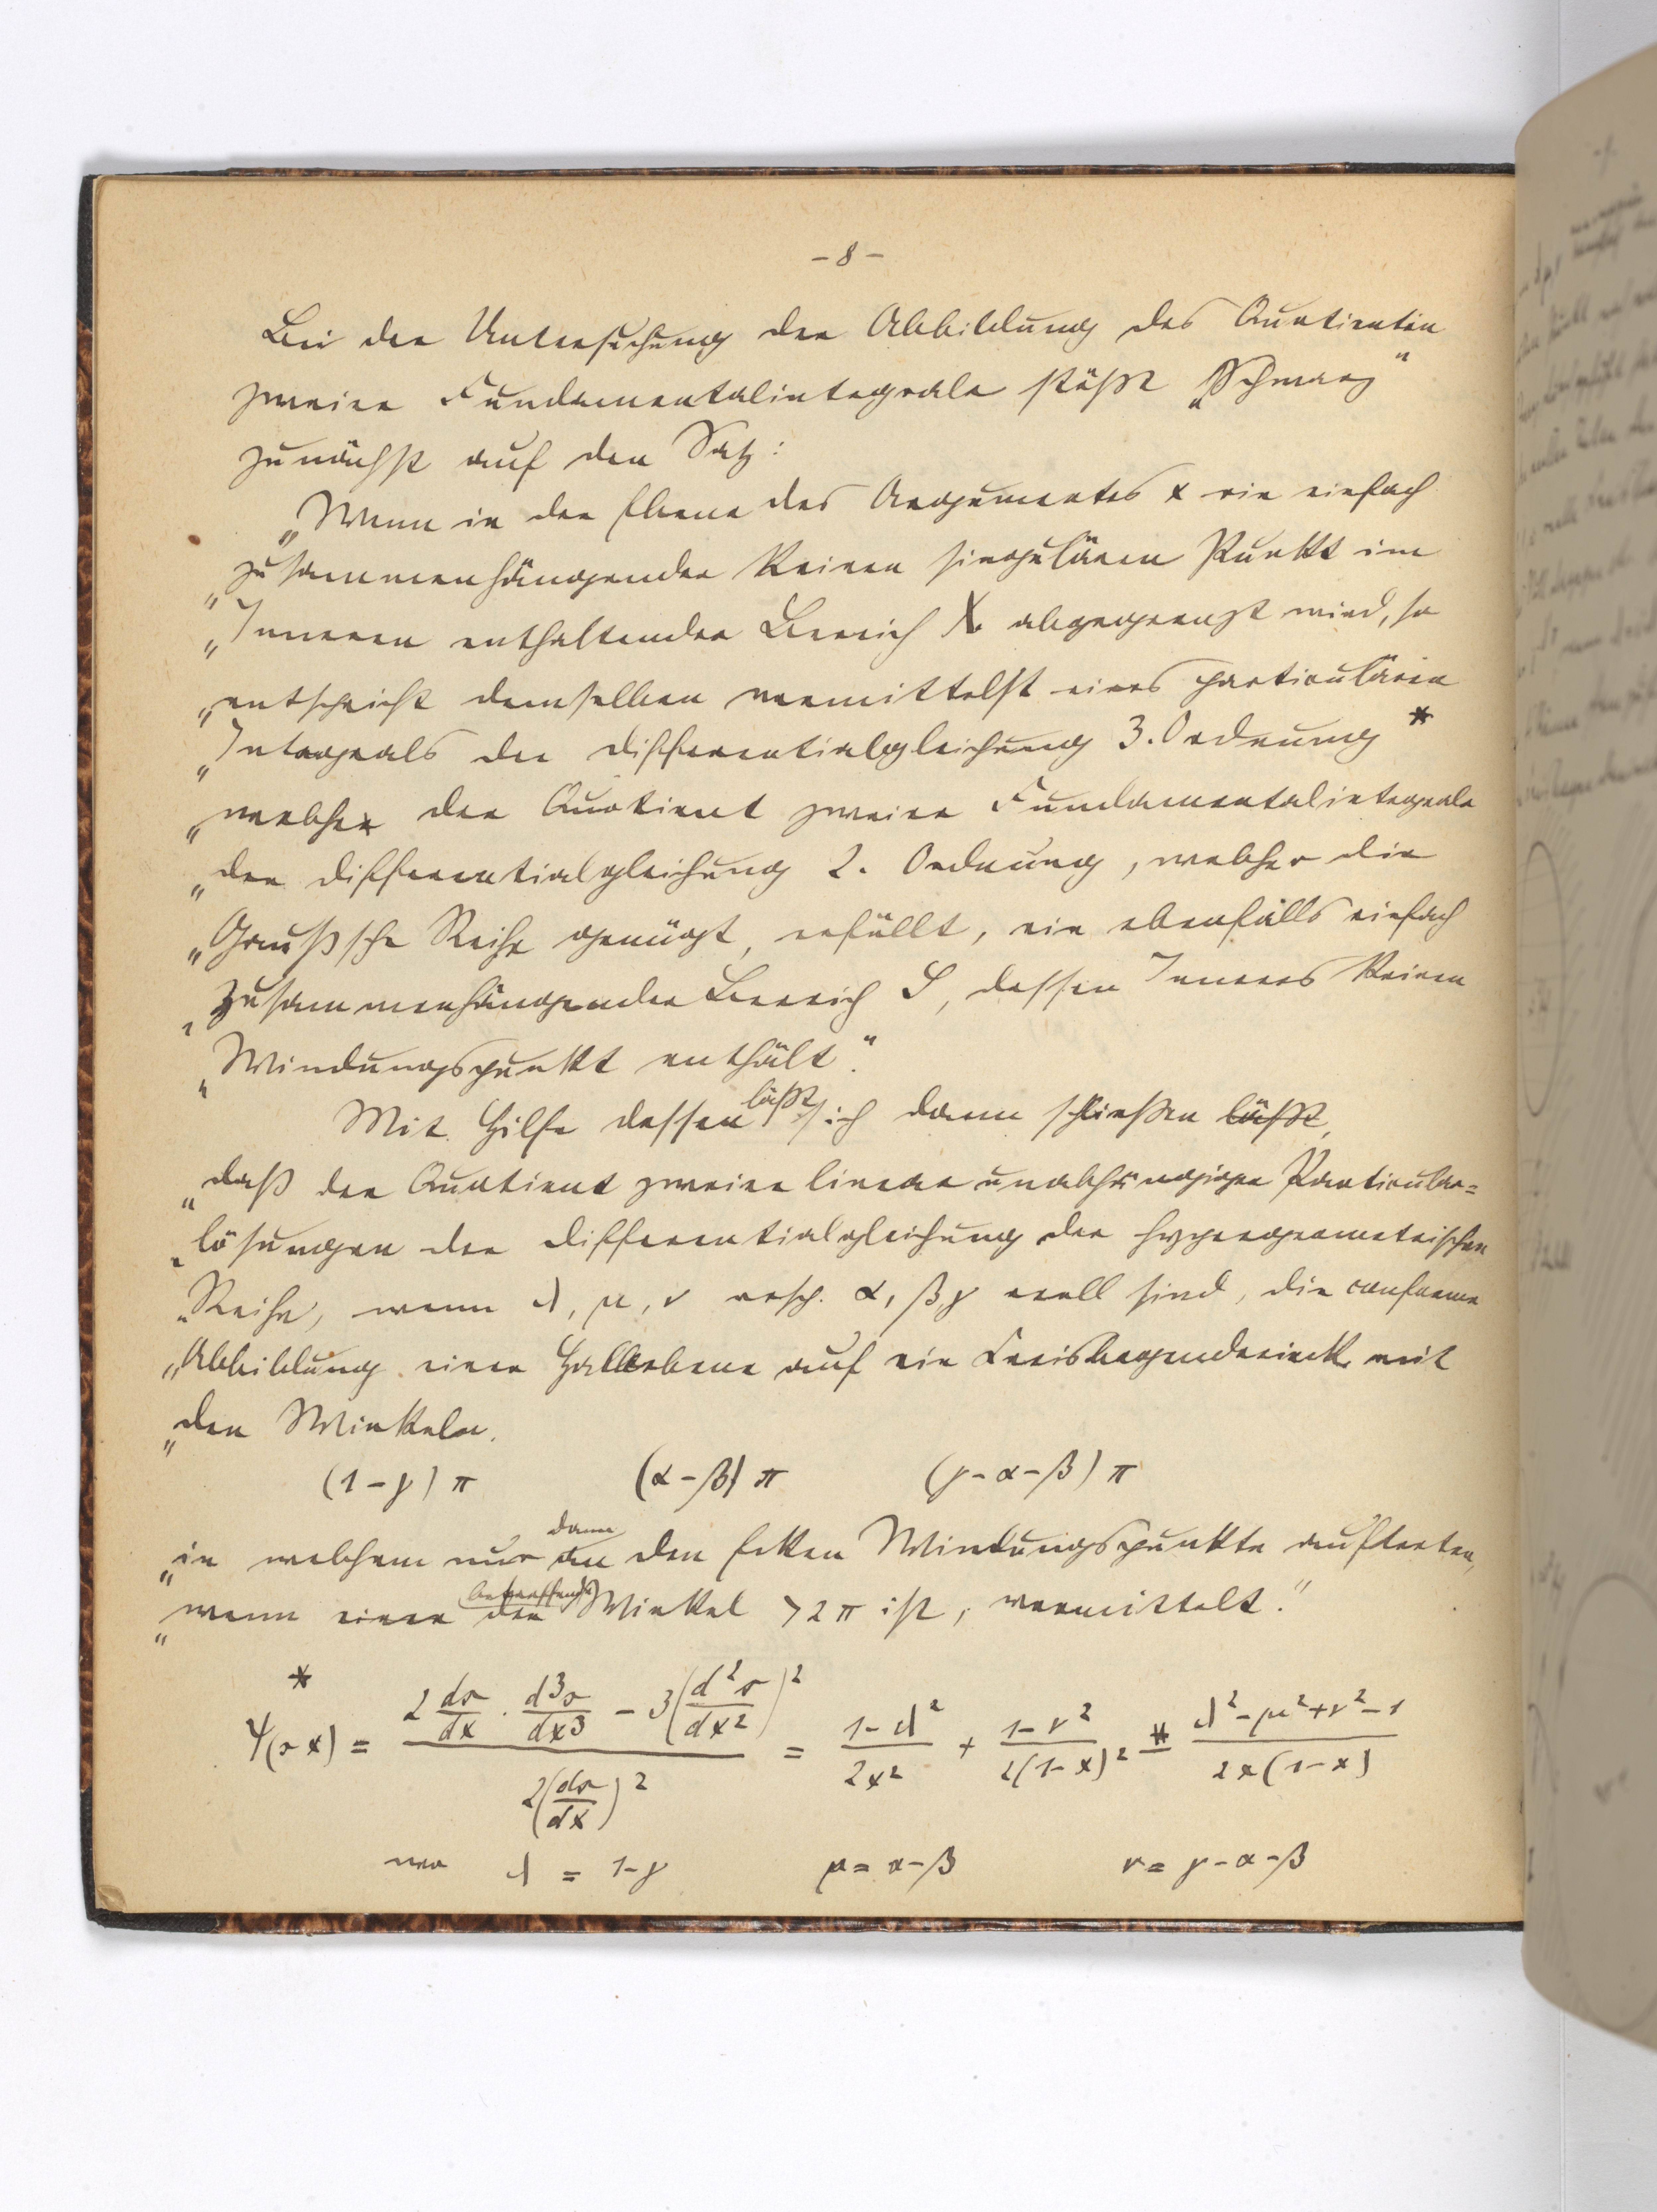 - 8 -
Bei der Untersuchung der Abbildung des Quotienten
zweier Fundamentalintegrale stößt „Schwarz"
zunächst auf den Satz:
„Wenn in der Ebene des Argumentes x ein einfach
„zusammenhängender keinen singulären Punkt im
„Inneren enthaltender Bereich X abgegrenzt wird, so
„entspricht demselben vermittelst eines particulären
„Integrals der Differentialgleichung 3. Ordnung *
„welcher der Quotient zweier Fundamentalintegrale
„der Differentialgleichung 2. Ordnung, welcher die
„Gaußsche Reihe genügt, erfüllt, ein ebenfalls einfach
„zusammenhängender Bereich S, dessen Inneres keinen
„Windungspunkt enthält."
Mit Hilfe dessen läßt sich dann schließen läßt,
„daß der Quotient zweier linear unabhängiger Particular=
„lösungen der Differentialgleichung der hypergeometrischen
„Reihe, wenn λ, μ, ν resp. α, β, γ reell sind, die conforme
„Abbildung einer Halbebene auf ein Kreisbogendreieck mit
„den Winkeln.
(1-γ) π (α-β) π (γ-α-β) π
„in welchem nur dann an den Ecken Windungspunkte auftreten,
„wenn einer der betreffende Winkel > 2π ist, vermittelt."
* Ψ(s x) = (2 ds/dx · d³s/dx³ - 3(d²s/dx²)²) / 2(ds/dx)² = (1-λ²)/2x² + (1-ν²)/2(1-x)² - (λ²-μ²+ν²-1)/2x(1-x)
wo λ = 1-γ μ = α-β ν = γ-α-β